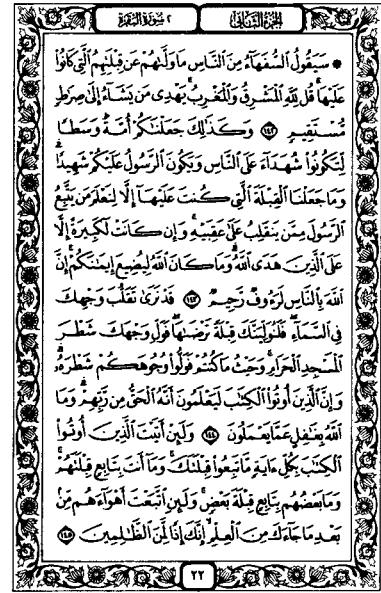 الجزء الثاني ٢ سورة البقرة
۞ سَيَقُولُ السُّفَهَاءُ مِنَ النَّاسِ مَا وَلَّىٰهُمْ عَن قِبْلَتِهِمُ الَّتِي كَانُوا
عَلَيْهَا ۚ قُل لِّلَّهِ الْمَشْرِقُ وَالْمَغْرِبُ ۚ يَهْدِي مَن يَشَاءُ إِلَىٰ صِرَٰطٍ
مُّسْتَقِيمٍ ١٤٢ وَكَذَٰلِكَ جَعَلْنَٰكُمْ أُمَّةً وَسَطًا
لِّتَكُونُوا شُهَدَاءَ عَلَى النَّاسِ وَيَكُونَ الرَّسُولُ عَلَيْكُمْ شَهِيدًا ۗ
وَمَا جَعَلْنَا الْقِبْلَةَ الَّتِي كُنتَ عَلَيْهَا إِلَّا لِنَعْلَمَ مَن يَتَّبِعُ
الرَّسُولَ مِمَّن يَنقَلِبُ عَلَىٰ عَقِبَيْهِ ۚ وَإِن كَانَتْ لَكَبِيرَةً إِلَّا
عَلَى الَّذِينَ هَدَى اللَّهُ ۗ وَمَا كَانَ اللَّهُ لِيُضِيعَ إِيمَٰنَكُمْ ۚ إِنَّ
اللَّهَ بِالنَّاسِ لَرَءُوفٌ رَّحِيمٌ ١٤٣ قَدْ نَرَىٰ تَقَلُّبَ وَجْهِكَ
فِي السَّمَاءِ ۖ فَلَنُوَلِّيَنَّكَ قِبْلَةً تَرْضَىٰهَا ۚ فَوَلِّ وَجْهَكَ شَطْرَ
الْمَسْجِدِ الْحَرَامِ ۚ وَحَيْثُ مَا كُنتُمْ فَوَلُّوا وُجُوهَكُمْ شَطْرَهُ ۗ
وَإِنَّ الَّذِينَ أُوتُوا الْكِتَٰبَ لَيَعْلَمُونَ أَنَّهُ الْحَقُّ مِن رَّبِّهِمْ ۗ وَمَا
اللَّهُ بِغَٰفِلٍ عَمَّا يَعْمَلُونَ ١٤٤ وَلَئِنْ أَتَيْتَ الَّذِينَ أُوتُوا
الْكِتَٰبَ بِكُلِّ ءَايَةٍ مَّا تَبِعُوا قِبْلَتَكَ ۚ وَمَا أَنتَ بِتَابِعٍ قِبْلَتَهُمْ ۚ
وَمَا بَعْضُهُم بِتَابِعٍ قِبْلَةَ بَعْضٍ ۚ وَلَئِنِ اتَّبَعْتَ أَهْوَاءَهُم مِّن
بَعْدِ مَا جَاءَكَ مِنَ الْعِلْمِ ۙ إِنَّكَ إِذًا لَّمِنَ الظَّٰلِمِينَ ١٤٥
٢٢